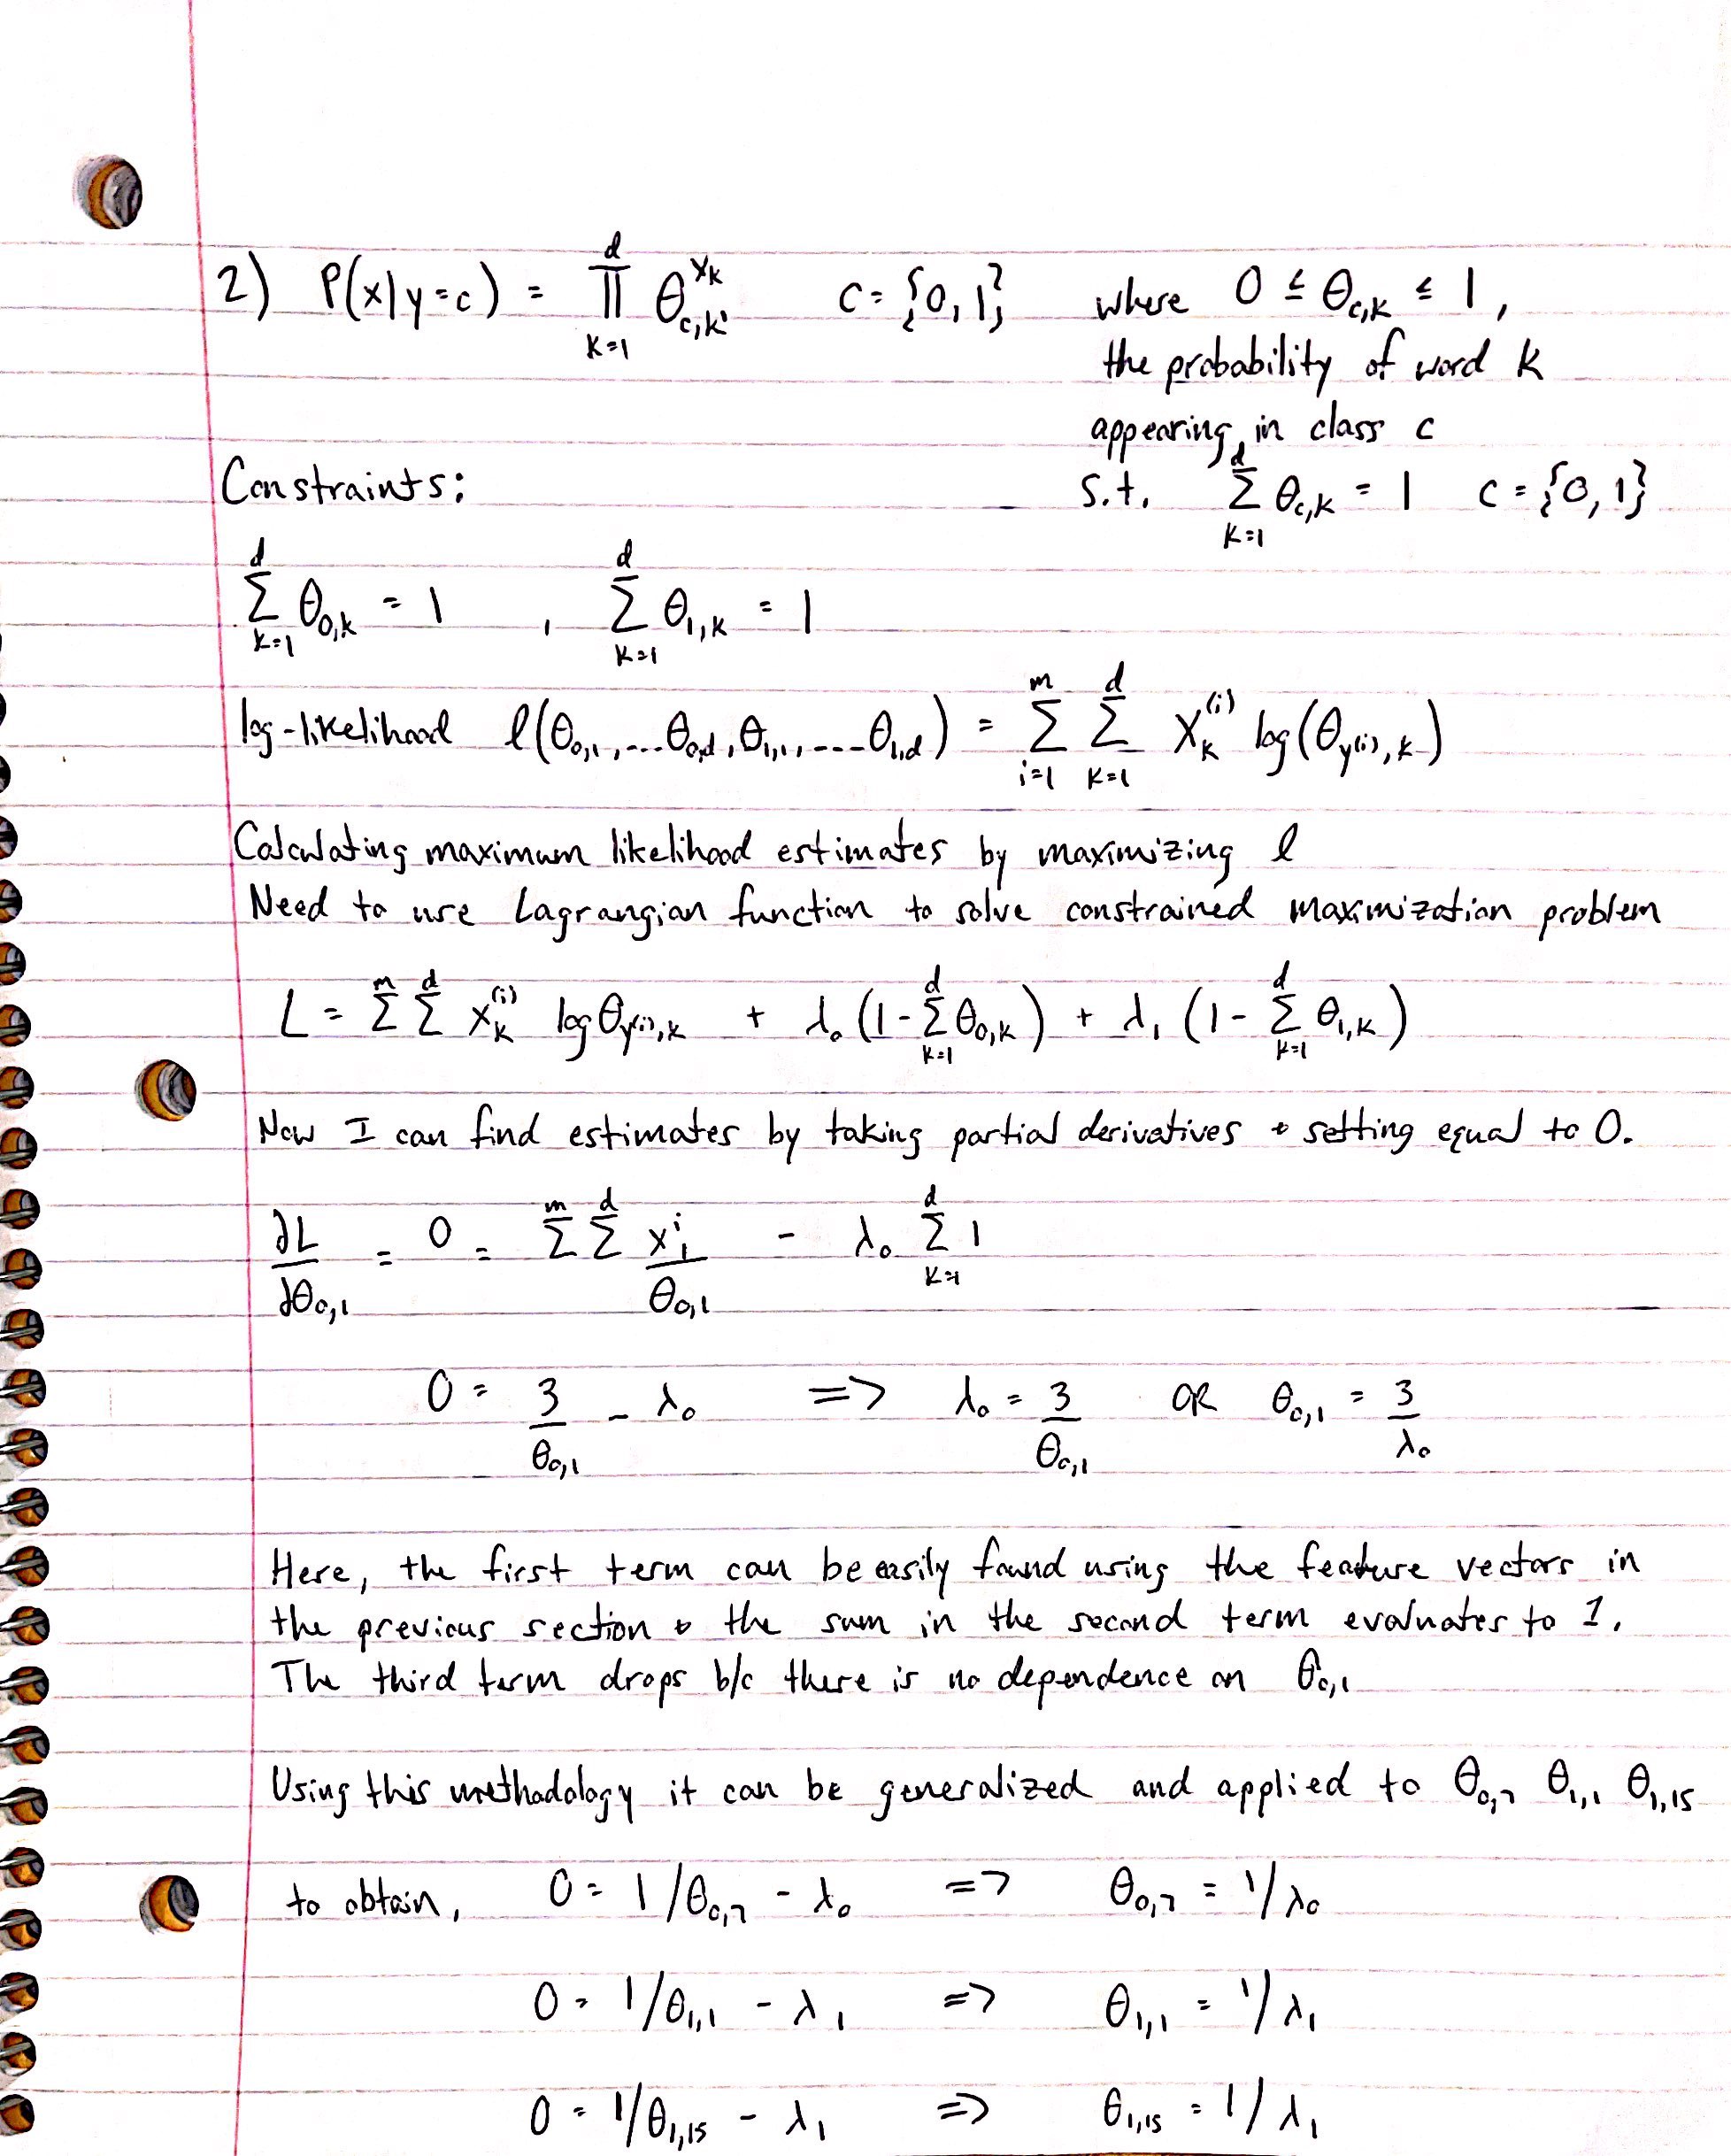 2) P(x|y=c) = ∏_{k=1}^{d} θ_{c,k}^{x_k} c = {0, 1} where 0 ≤ θ_{c,k} ≤ 1,
the probability of word k
appearing in class c
Constraints: s.t. ∑_{k=1}^{d} θ_{c,k} = 1 c = {0, 1}
∑_{k=1}^{d} θ_{0,k} = 1 , ∑_{k=1}^{d} θ_{1,k} = 1
log-likelihood ℓ(θ_{0,1}, ... θ_{0,d}, θ_{1,1}, ... θ_{1,d}) = ∑_{i=1}^{m} ∑_{k=1}^{d} x_k^{(i)} log(θ_{y^{(i)},k})
Calculating maximum likelihood estimates by maximizing ℓ
Need to use Lagrangian function to solve constrained maximization problem
L = ∑^{m} ∑^{d} x_k^{(i)} log θ_{y^{(i)},k} + λ_0 (1 - ∑_{k=1}^{d} θ_{0,k}) + λ_1 (1 - ∑_{k=1}^{d} θ_{1,k})
Now I can find estimates by taking partial derivatives + setting equal to 0.
∂L/∂θ_{0,1} = 0 = ∑^{m} ∑^{d} x_1^{i}/θ_{0,1} - λ_0 ∑_{k=1}^{d} 1
0 = 3/θ_{0,1} - λ_0 => λ_0 = 3/θ_{0,1} OR θ_{0,1} = 3/λ_0
Here, the first term can be easily found using the feature vectors in
the previous section & the sum in the second term evaluates to 1.
The third term drops b/c there is no dependence on θ_{0,1}
Using this methodology it can be generalized and applied to θ_{0,7} θ_{1,1} θ_{1,15}
to obtain, 0 = 1/θ_{0,7} - λ_0 => θ_{0,7} = 1/λ_0
0 = 1/θ_{1,1} - λ_1 => θ_{1,1} = 1/λ_1
0 = 1/θ_{1,15} - λ_1 => θ_{1,15} = 1/λ_1